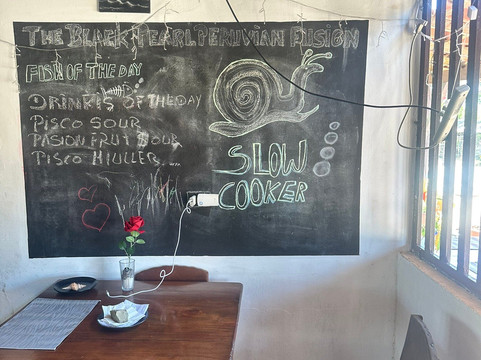 THE BLACK PEARL PERUVIAN FUSION
FISH OF THE DAY
DRINKS OF THE DAY
PISCO SOUR
PASION FRUIT SOUR
PISCO HIULLER....
SLOW
COOKER